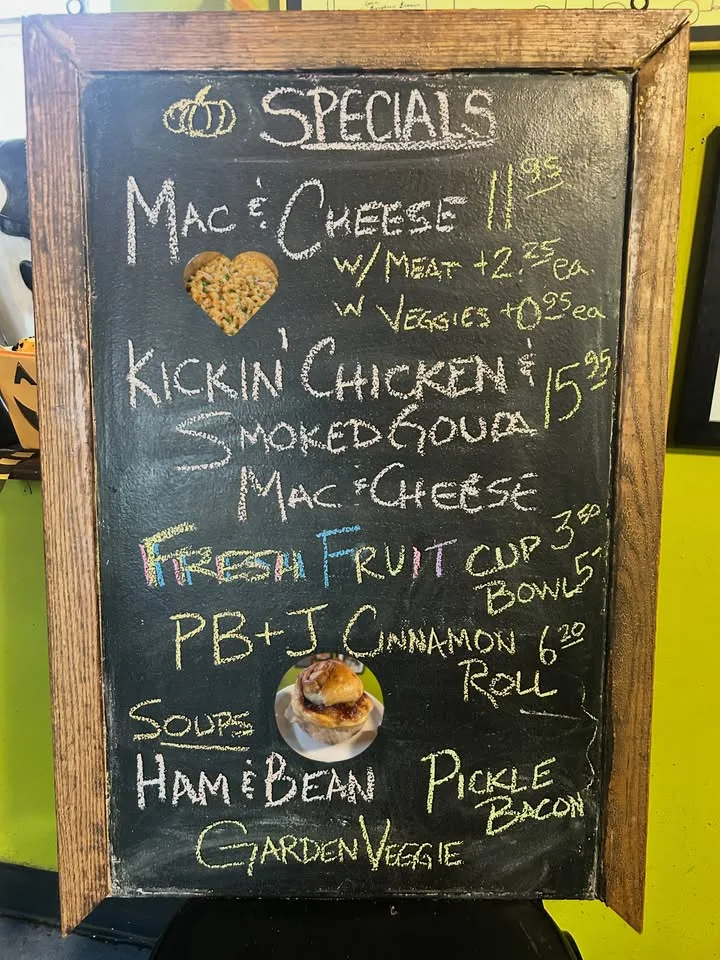 SPECIALS
MAC & CHEESE 11.95
W/ MEAT +2.25 ea.
W VEGGIES +0.95 ea
KICKIN' CHICKEN & 15.95
SMOKED GOUDA
MAC & CHEESE
FRESH FRUIT CUP 3.50
BOWL 5-
PB+J CINNAMON 6.20
ROLL
SOUPS
HAM & BEAN PICKLE
BACON
GARDEN VEGGIE